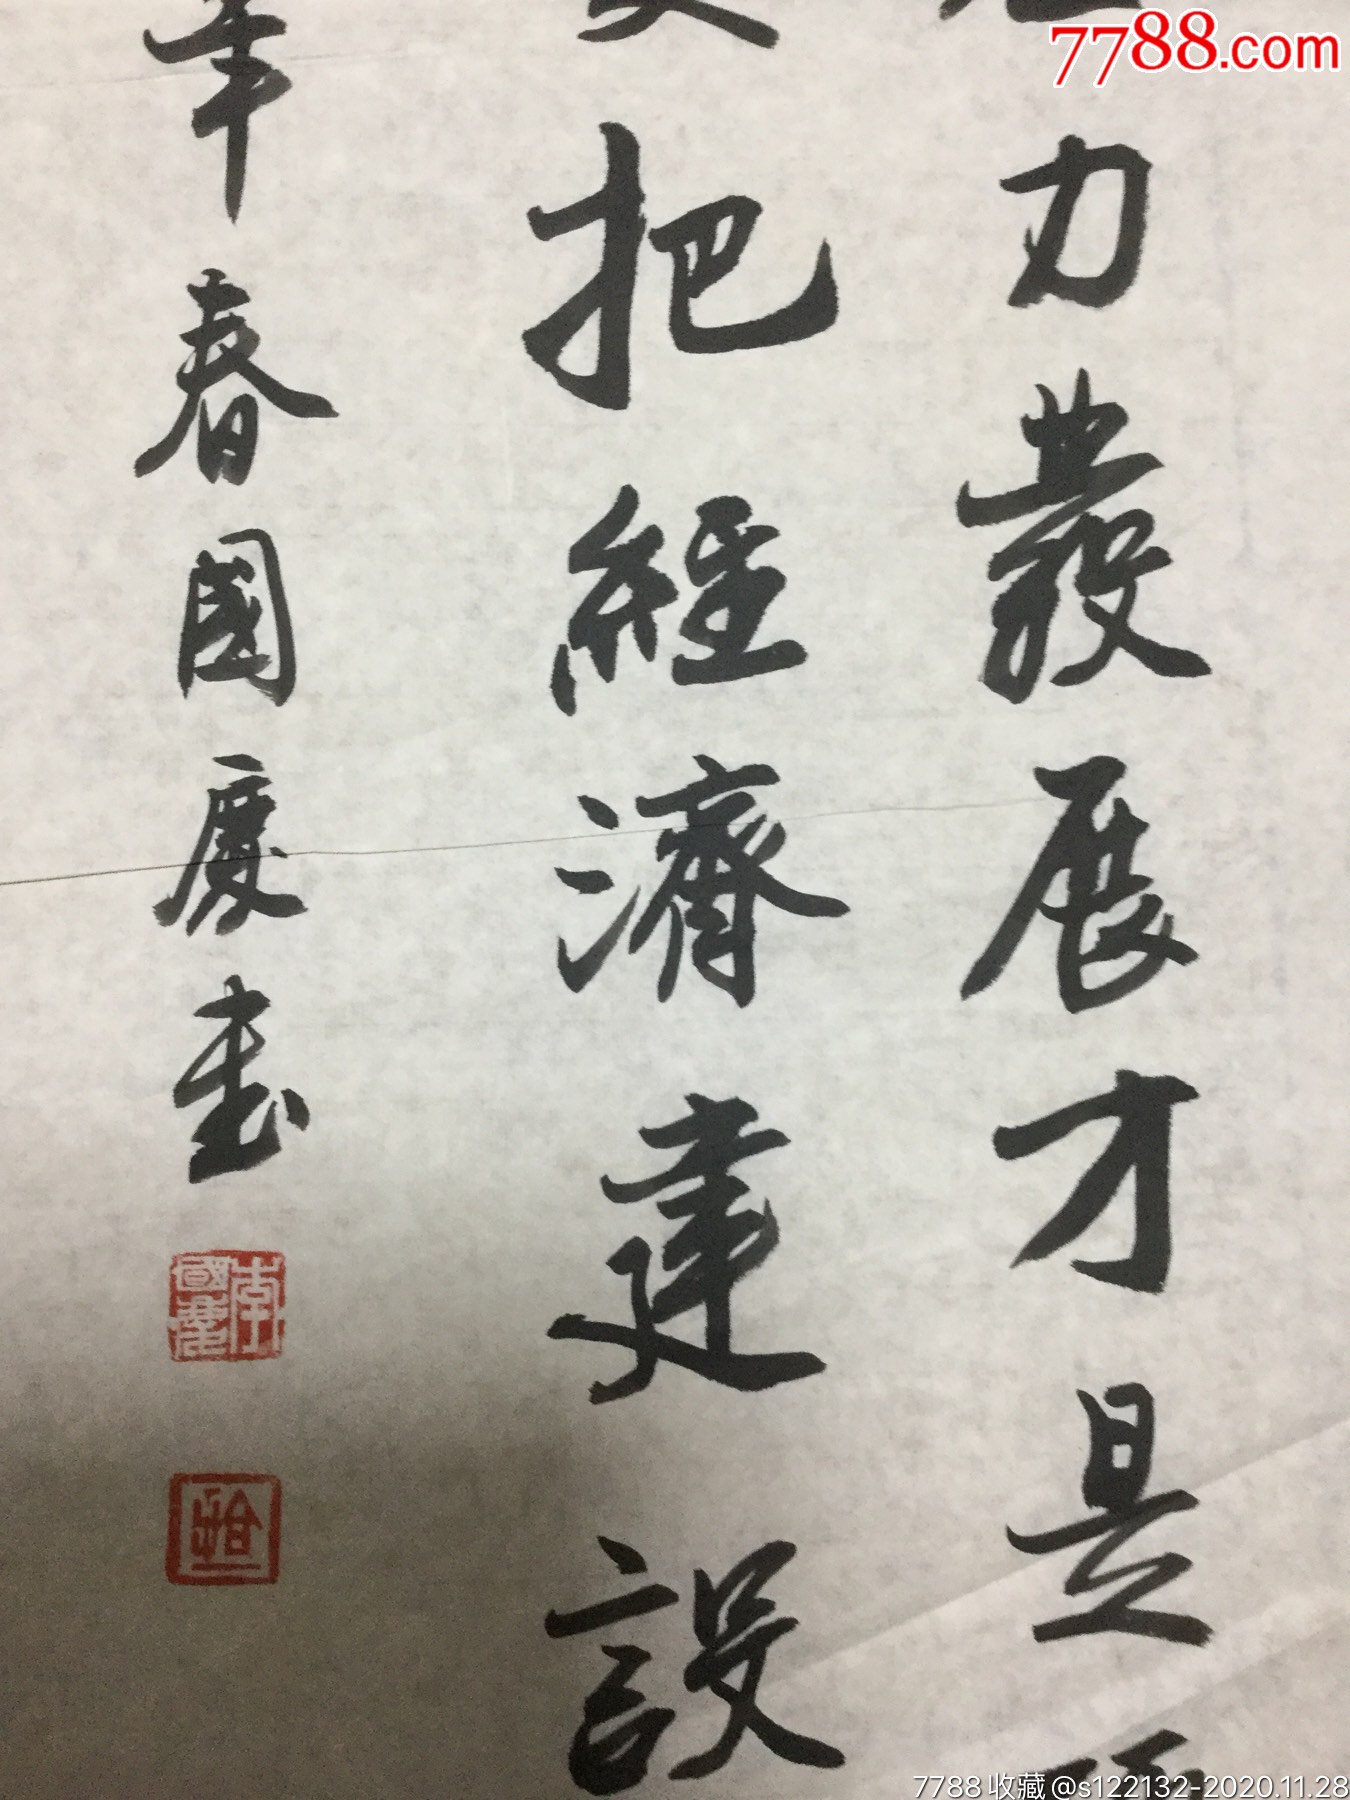 7788.com
力發展才是
把經濟建設
年春國慶書
李國慶
7788收藏@s122132-2020.11.28